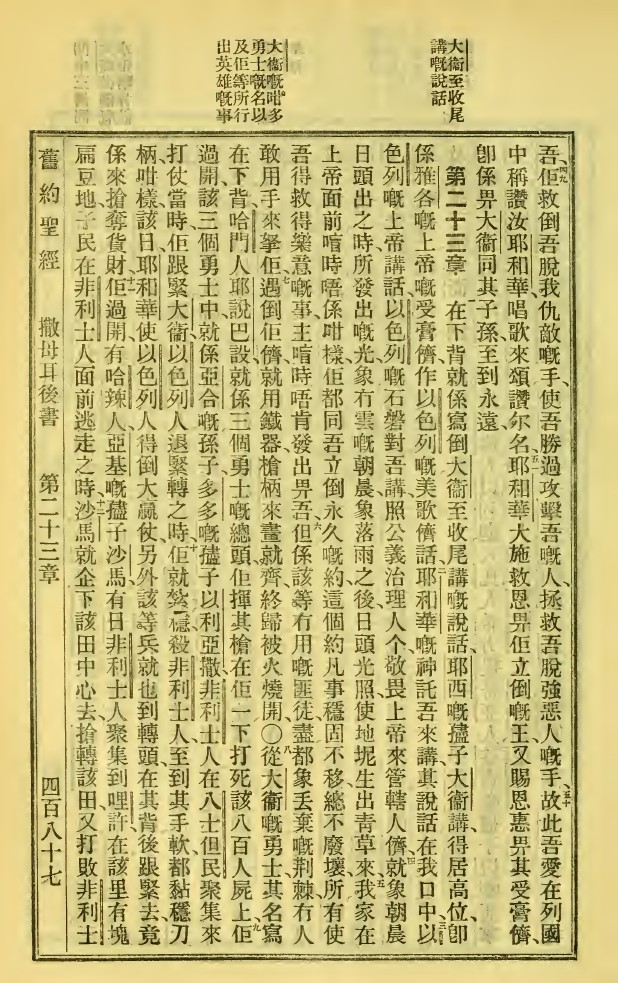 大衞至收尾
講嘅說話
大衞嘅咁多
勇士嘅名以
及佢等所行
出英雄嘅事
吾佢救倒吾脫我仇敵嘅手使吾勝過攻擊吾嘅人拯救吾脫強惡人嘅手故此吾愛在列國
中稱讚汝耶和華唱歌來頌讚尔名耶和華大施救恩畀佢立倒嘅王又賜恩惠畀其受膏儕
卽係畀大衞同其子孫至到永遠
第二十三章 在下背就係寫倒大衞至收尾講嘅說話耶西嘅孻子大衞講得居高位卽
係雅各嘅上帝嘅受膏儕作以色列嘅美歌儕話耶和華嘅神託吾來講其說話在我口中以
色列嘅上帝講話以色列嘅石磐對吾講照公義治理人个敬畏上帝來管轄人儕就象朝晨
日頭出之時所發出嘅光象冇雲嘅朝晨象落雨之後日頭光照使地坭生出靑草來我家在
上帝面前喑時唔係咁樣佢都同吾立倒永久嘅約這個約凡事穩固不移總不廢壞所有使
吾得救得樂意嘅事主喑時唔肯發出畀吾但係該等冇用嘅匪徒盡都象丢棄嘅荆棘冇人
敢用手來拏佢遇倒佢儕就用鐵器槍柄來晝就齊終歸被火燒開〇從大衞嘅勇士其名寫
在下背哈門人耶說巴設就係三個勇士嘅總頭佢揮其槍在佢一下打死該八百人屍上佢
過開該三個勇士中就係亞合嘅孫子多多嘅孻子以利亞撒非利士人在八士但民聚集來
打仗當時佢跟緊大衞以色列人退緊轉之時佢就企穩殺非利士人至到其手軟都黏穩刀
柄咁樣該日耶和華使以色列人得倒大贏仗另外該等兵就也到轉頭在其背後跟緊去竟
係來搶奪貨財佢過開有哈辣人亞基嘅孻子沙馬有日非利士人聚集到哩許在該里有塊
扁豆地子民在非利士人面前逃走之時沙馬就企下該田中心去搶轉該田又打敗非利士
舊約聖經 撒母耳後書 第二十三章 四百八十七